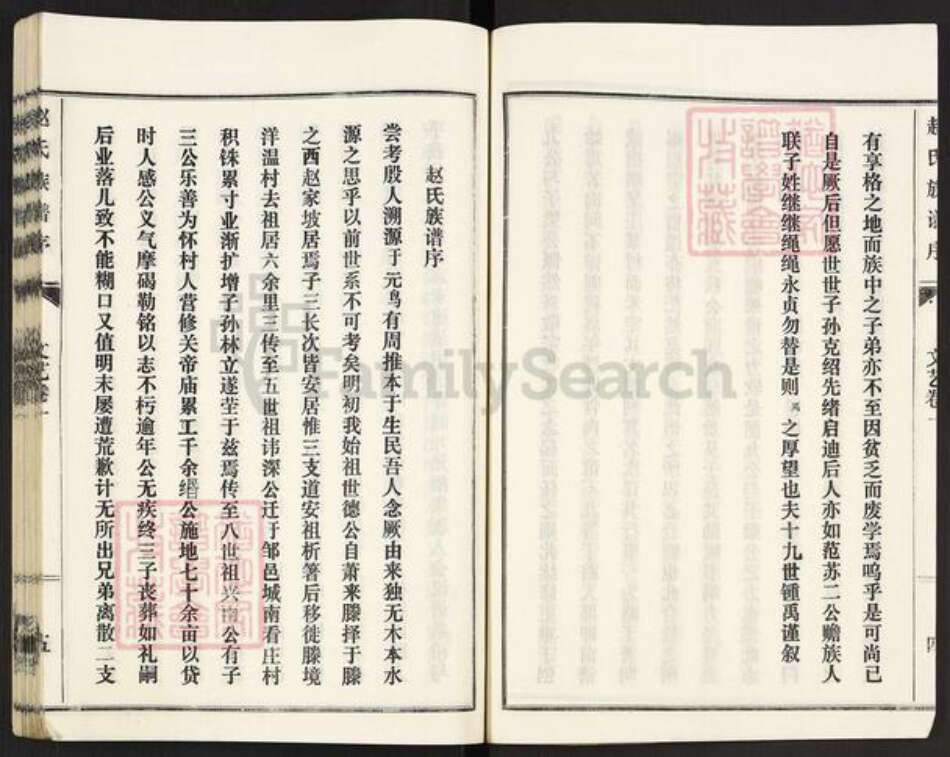 赵氏族谱序
文艺卷一
四
有享格之地而族中之子弟亦不至因贫乏而废学焉呜乎是可尚已
自是厥后但愿世世子孙克绍先绪启迪后人亦如范苏二公赡族人
联子姓继继绳绳永贞勿替是则禹之厚望也夫十九世锺禹谨叙
赵氏族谱序
尝考殷人溯源于元鸟有周推本于生民吾人念厥由来独无木本水
源之思乎以前世系不可考矣明初我始祖世德公自萧来滕择于滕
之西赵家坡居焉子三长次皆安居惟三支道安祖析箸后移徙滕境
洋温村去祖居六余里三传至五世祖讳深公迁于邹邑城南看庄村
积铢累寸业渐扩增子孙林立遂茔于兹焉传至八世祖兴南公有子
三公乐善为怀村人营修关帝庙累工千余缗公施地七十余亩以贷
时人感公义气摩碣勒铭以志不朽逾年公无疾终三子丧葬如礼嗣
后业落儿致不能糊口又值明末屡遭荒歉计无所出兄弟离散二支
赵氏族谱序
文艺卷一
五
FamilySearch